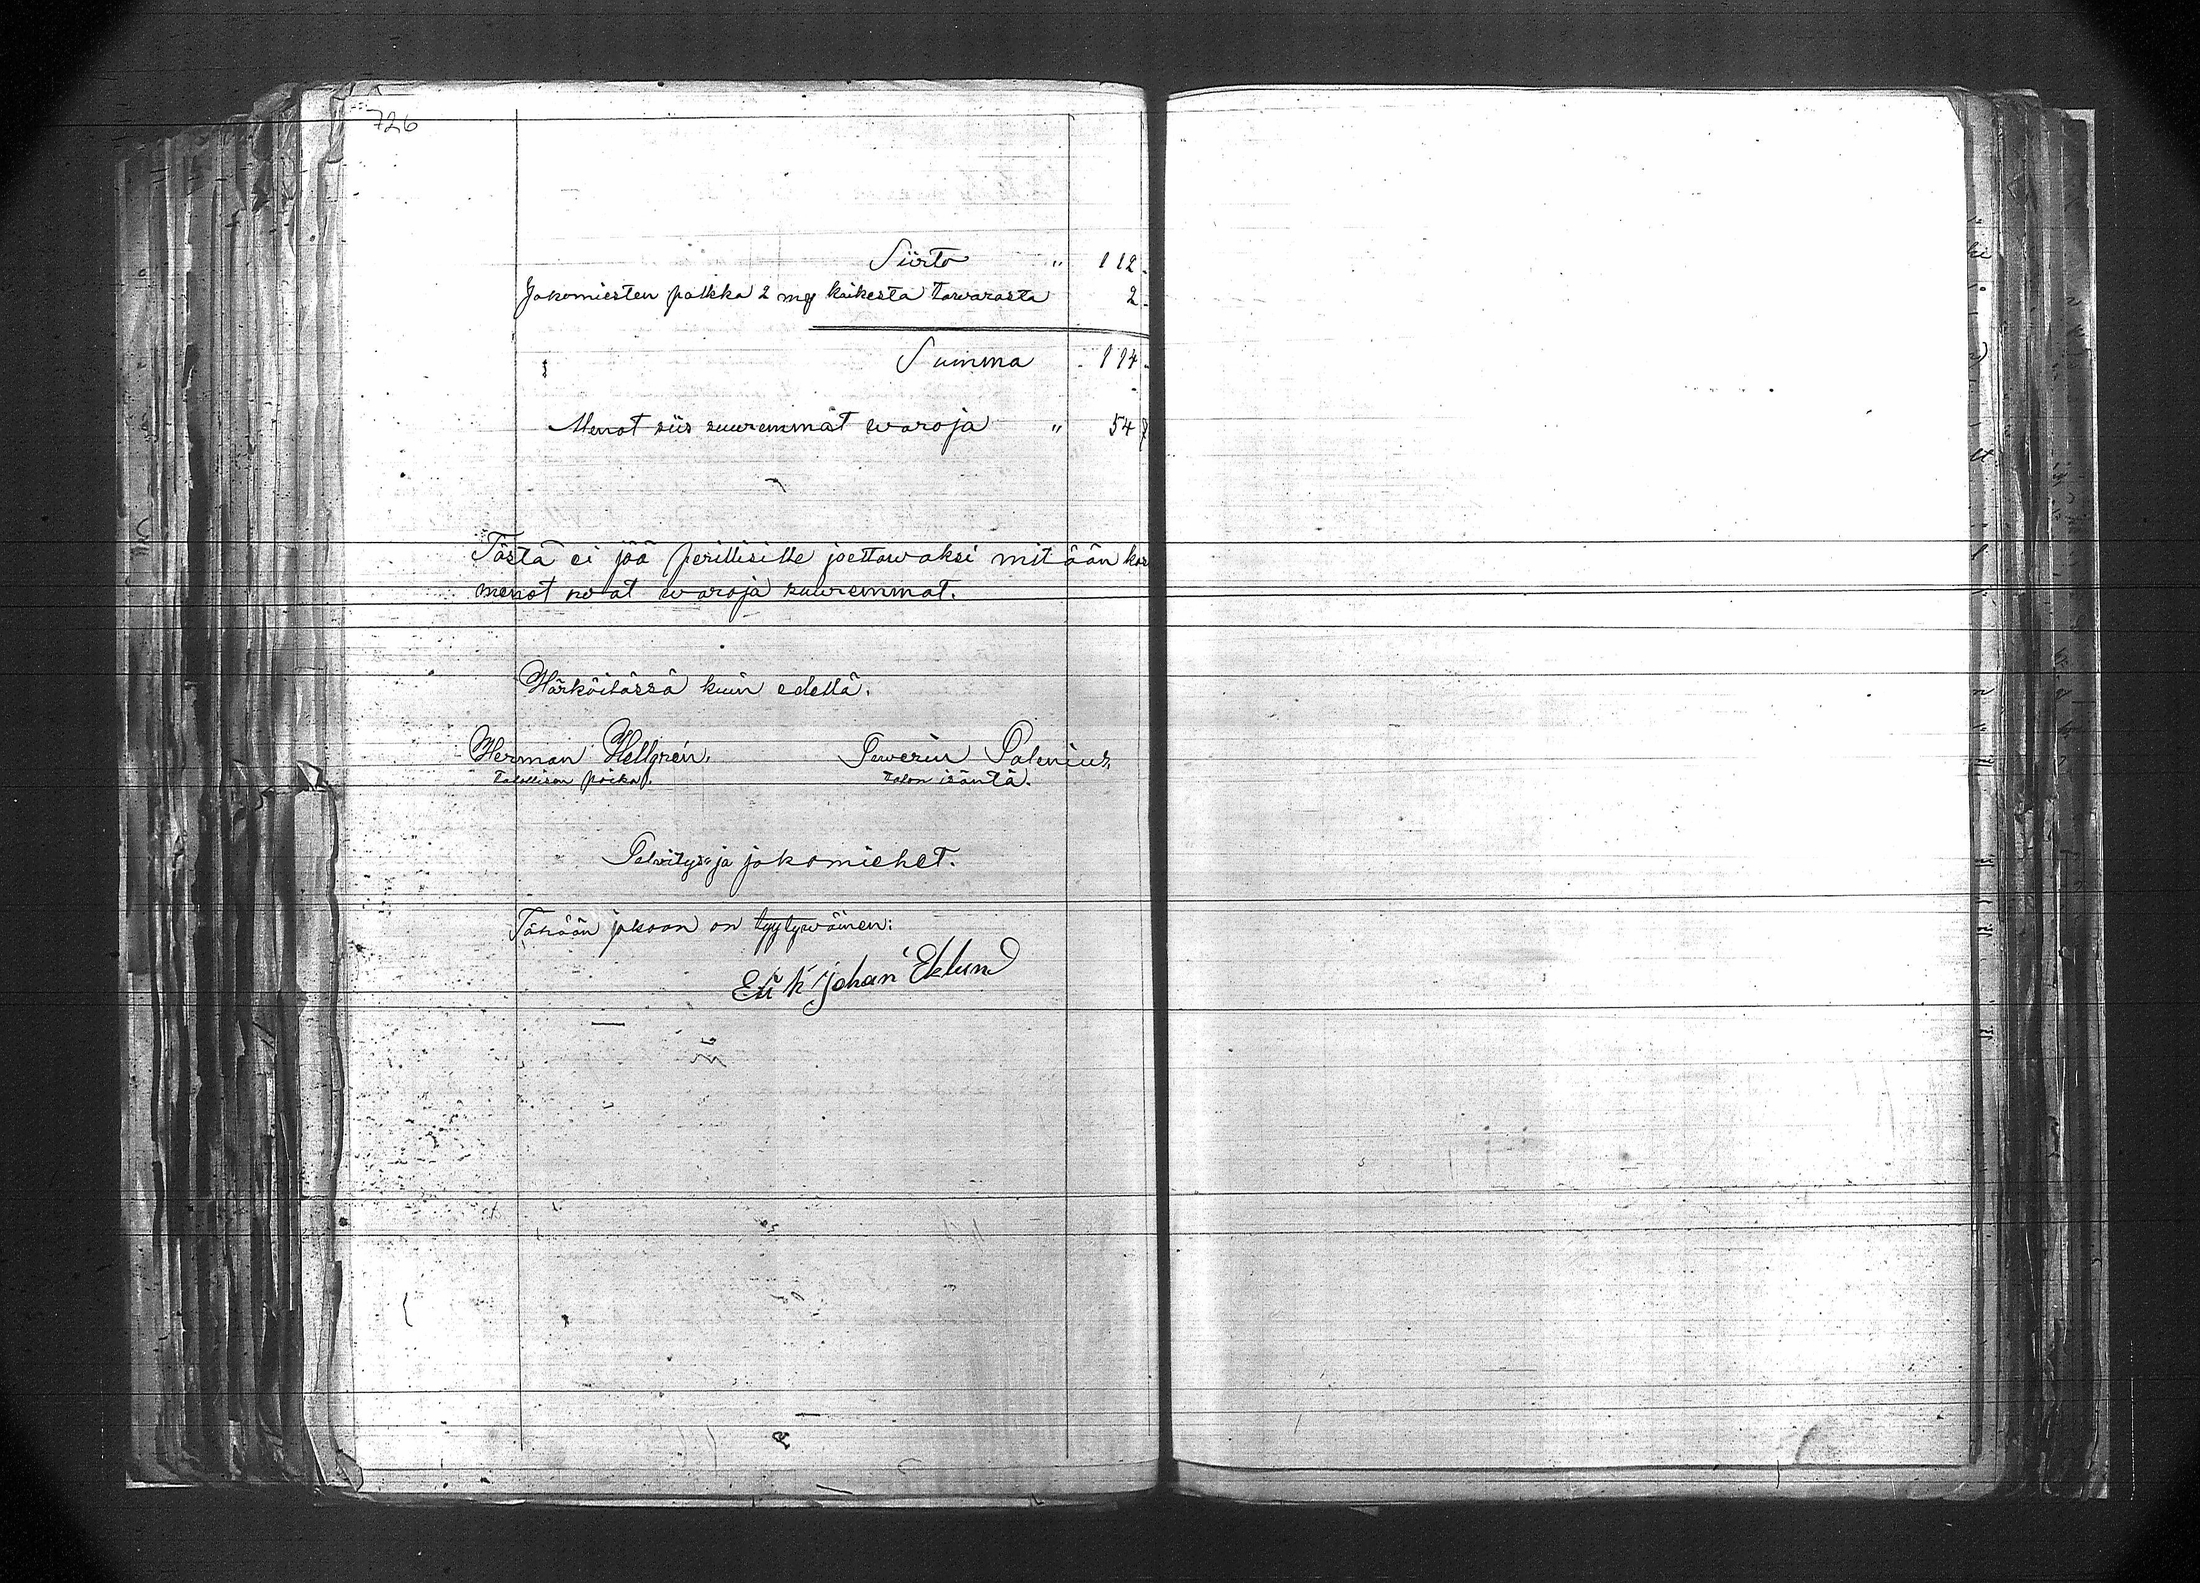 726
Siirto " 112.
Jakomiesten palkka 2 mg kaikesta tawarasta 2.
Summa 114.
Menot siis suuremmat waroja " 54
Tästä ei jää perillisille jaettawaksi mitään kos
menot owat waroja suuremmat.
Härköilässä kuin edellä.
Herman Hellgren. Severin Salenius
talollisen poika. talon isäntä.
Selvitys ja jakomiehet.
Tähään jakoon on tyytywäinen:
Erik Johan Eklund